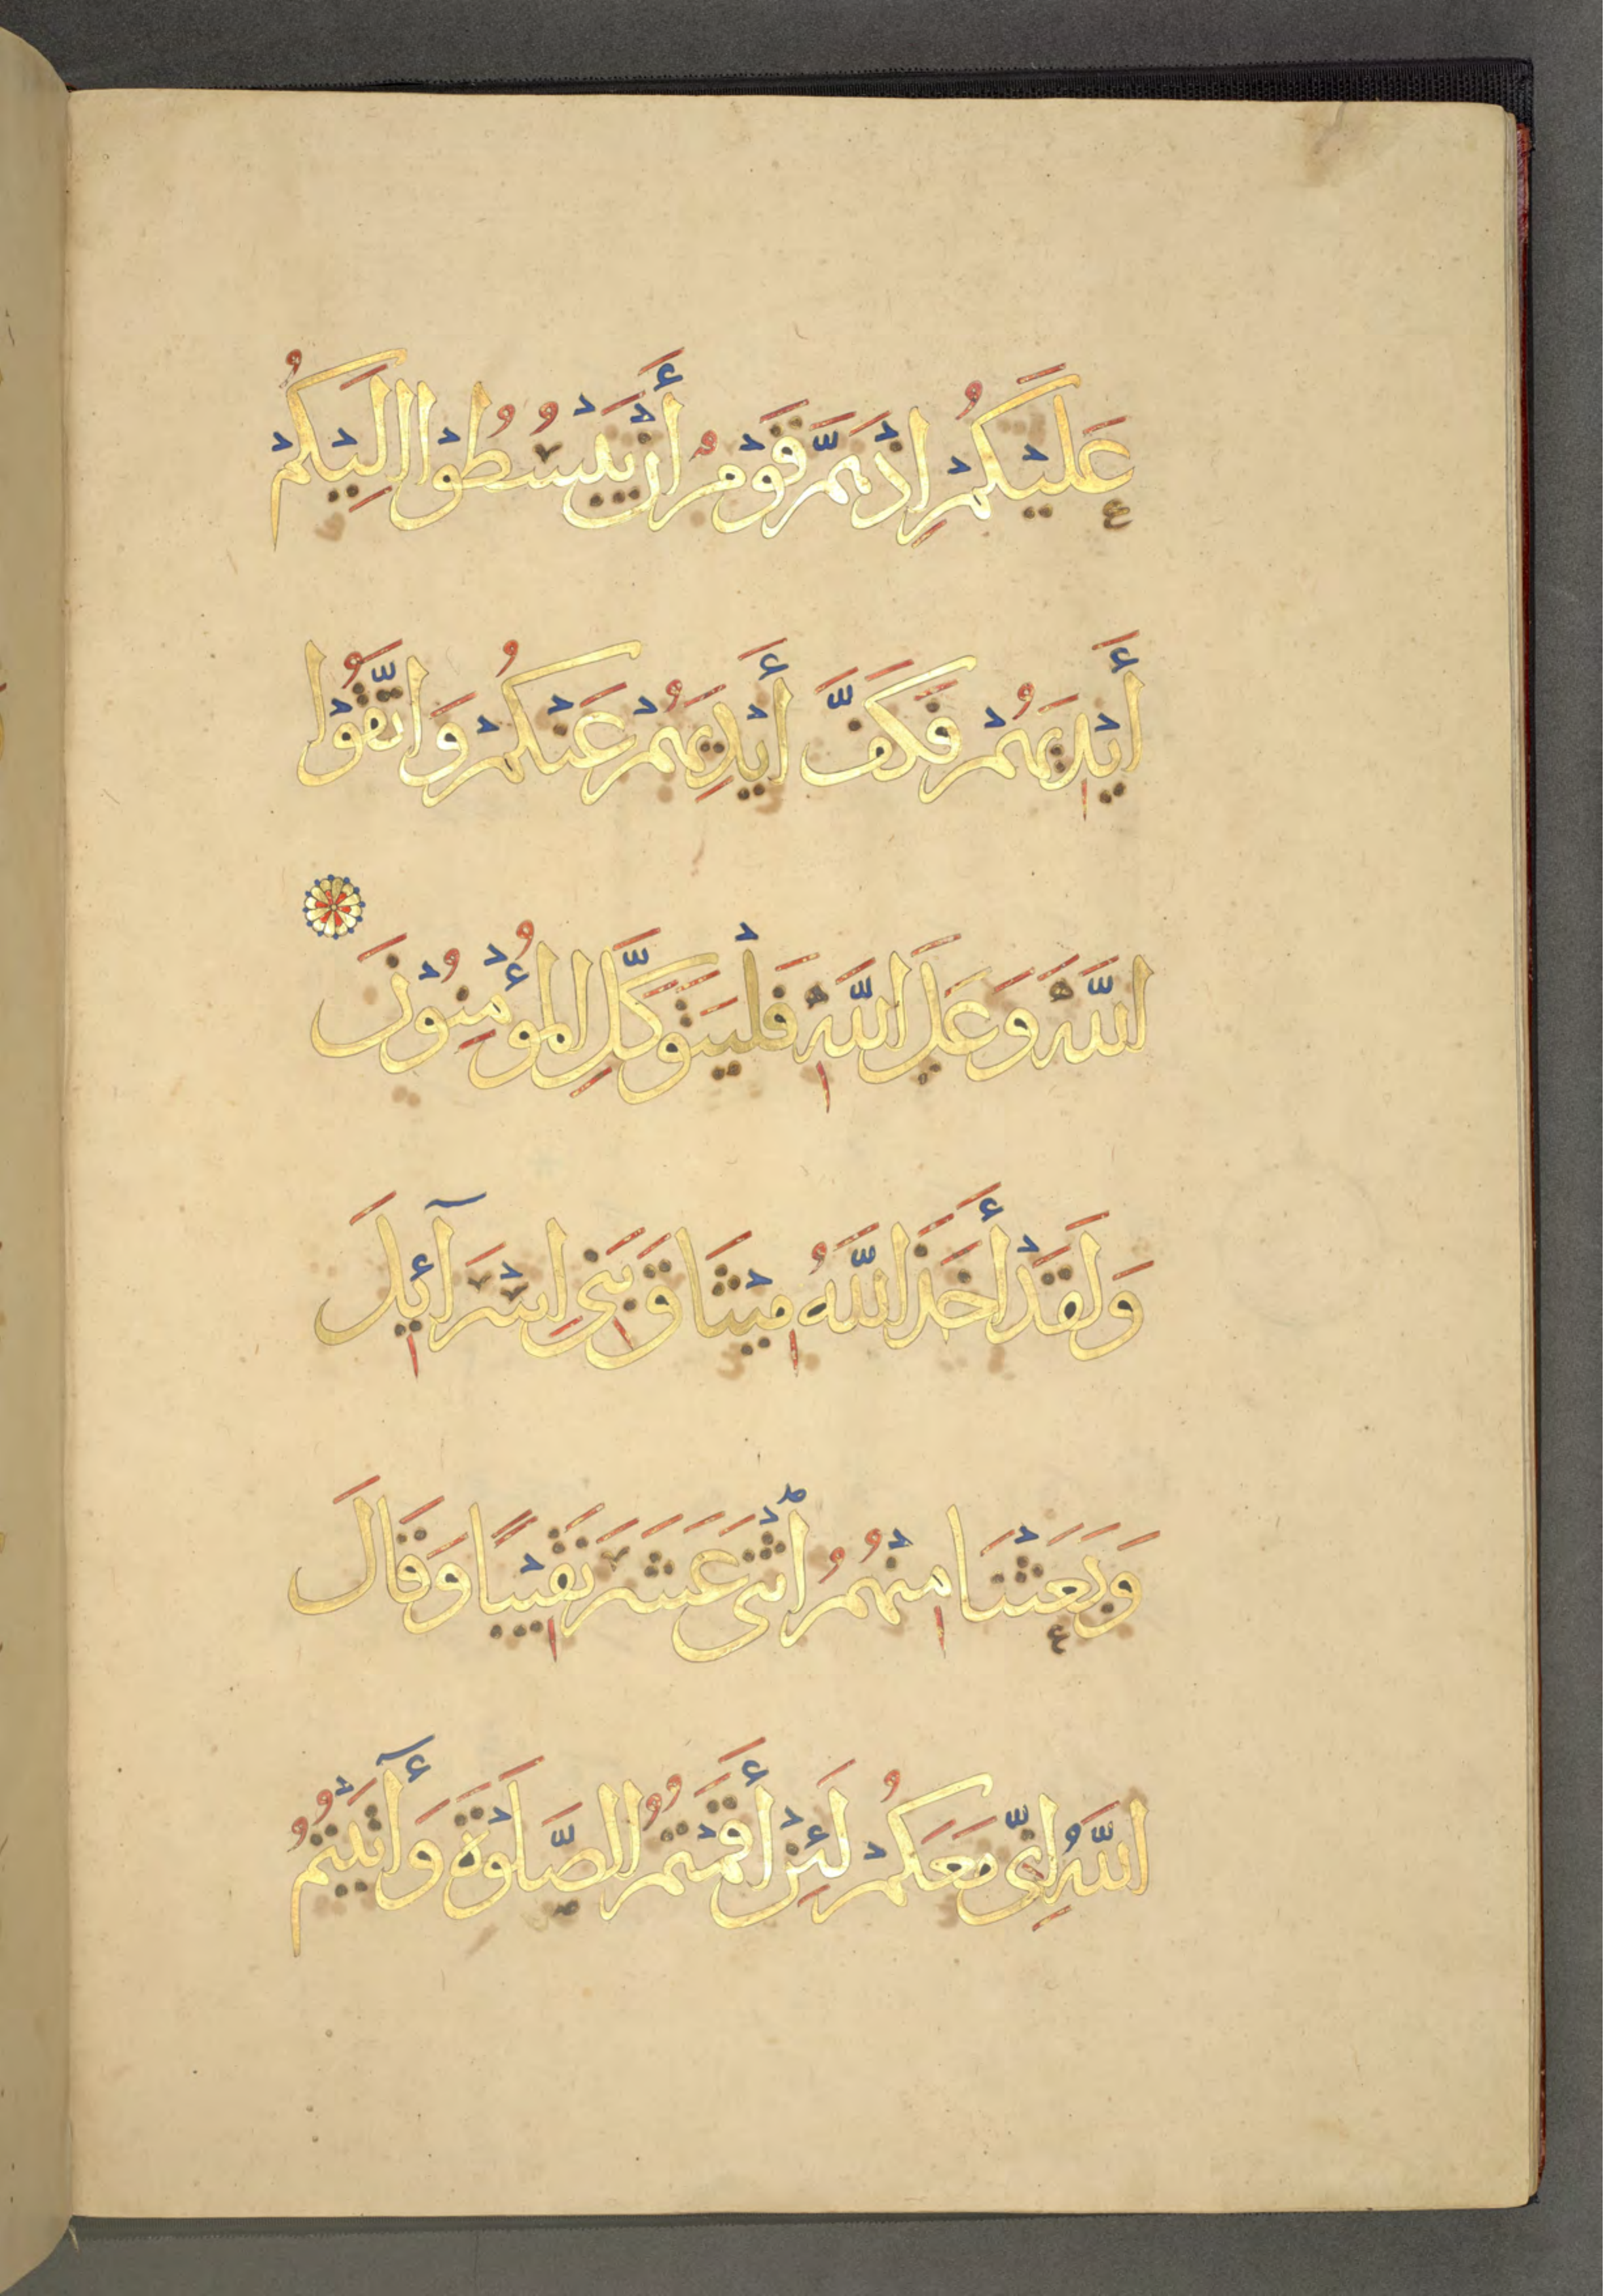 عَلَيْكُمْ اِذْ هَمَّ قَوْمٌ أَنْ يَبْسُطُوْا اِلَيْكُمْ
أَيْدِيَهُمْ فَكَفَّ أَيْدِيَهُمْ عَنْكُمْ وَاتَّقُوْا
اللّٰهَ وَعَلَى اللّٰهِ فَلْيَتَوَكَّلِ الْمُؤْمِنُوْنَ
وَلَقَدْ أَخَذَ اللّٰهُ مِيْثَاقَ بَنِي اِسْرَآئِيلَ
وَبَعَثْنَا مِنْهُمُ اثْنَيْ عَشَرَ نَقِيْبًا وَقَالَ
اللّٰهُ اِنِّي مَعَكُمْ لَئِنْ أَقَمْتُمُ الصَّلَوٰةَ وَأٓتَيْتُمُ